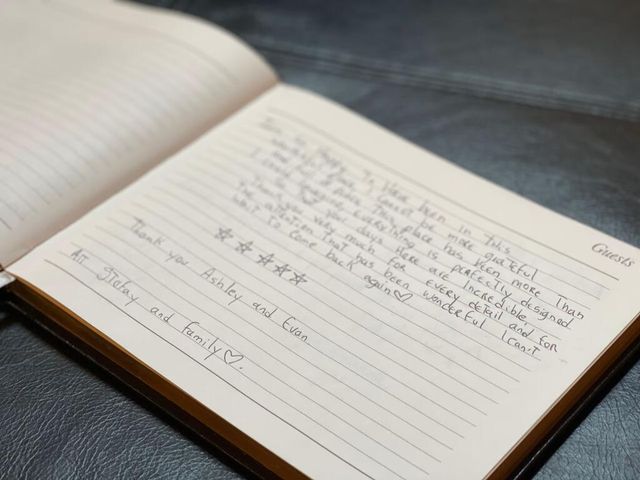 Guests
I am so Happy to Have been in this
place I cannot be more grateful
and This Place has been more Than
I could imagine, everything is perfectly designed
your days Here are Incredible,
Thank you very much for every detail and for
The attention That has been wonderful I can't
wait to come back again♡
☆☆☆☆☆
Thank you Ashley and Evan
Att and Family♡.